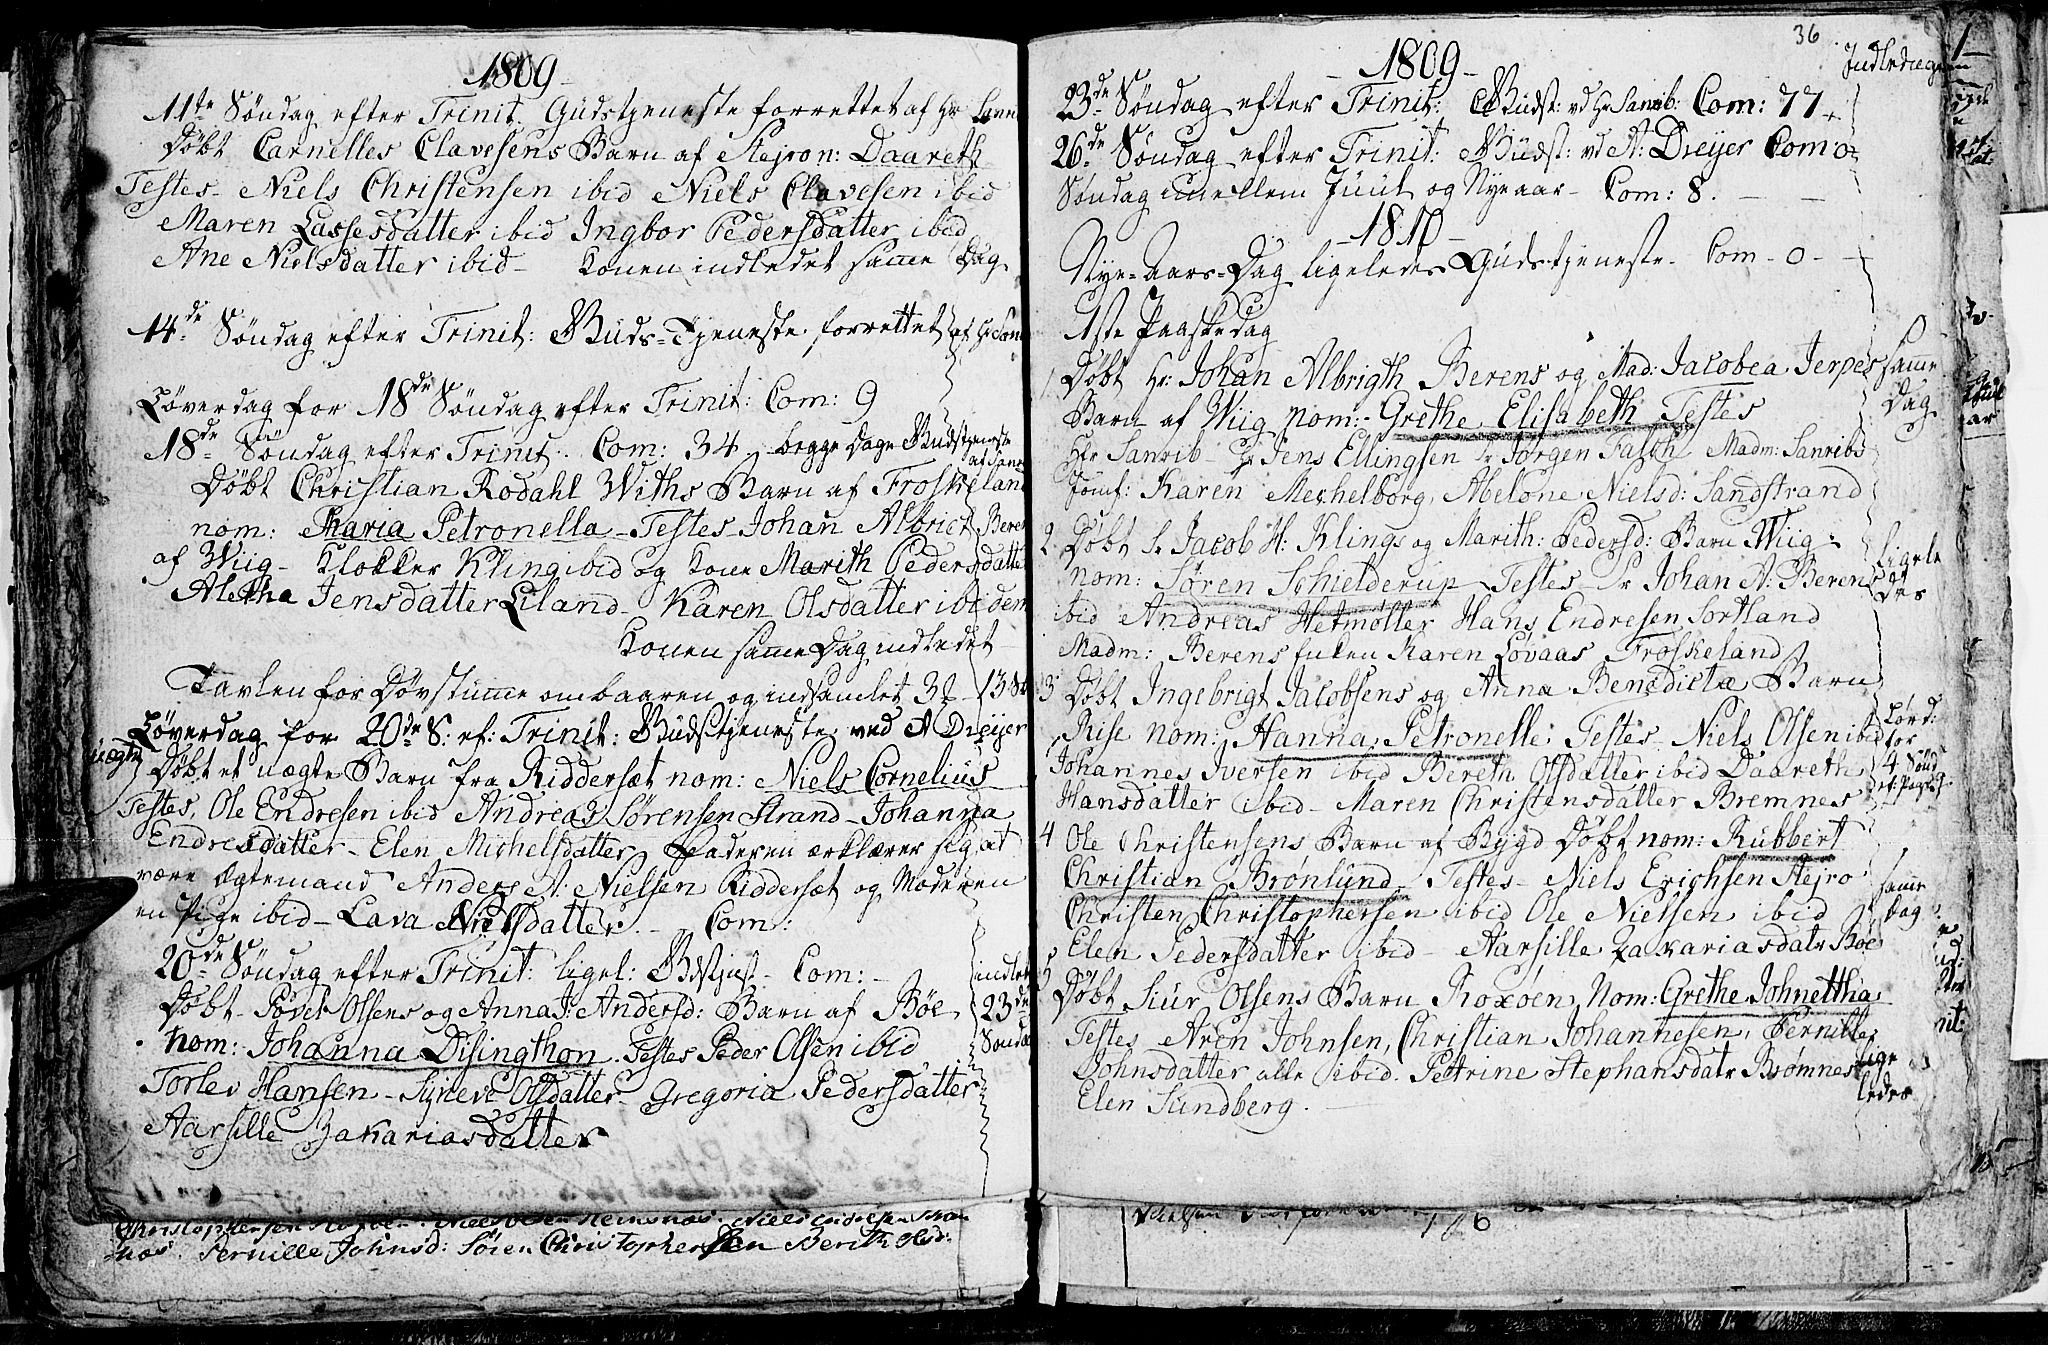 1809
11te Søndag efter Trinit. Gudstjeneste forrettet af Hr
Døbt Carnelles Clavesens Barn af Stejron: Daareth
Testes Niels Christensen ibid Niels Clavesen ibid
Maren Lassesdatter ibid Ingbor Pedersdatter ibid
Ane Nielsdatter ibid - Konen indledet samme Dag
14de Søndag efter Trinit: Guds-Tjeneste forrettet af Hr
Løverdag for 18de Søndag efter Trinit: Com: 9
18de Søndag efter Trinit. Com: 34 - begge Dage Gudstjeneste
Døbt Christian Rodahl Withs Barn af Froskeland
nom: Maria Petronella - Testes Johan Albrict Beren
af Wiig - Klokker Kling ibid og Kone Marith Pedersdatte
Aletha Jensdatter Liland - Karen Olsdatter ibidem
Konen samme Dag indledet
Tavlen for Døvstumme ombaaren og indsamlet 3 13
Løverdag for 20de S: ef: Trinit: Gudstjeneste ved A Dreijer
uægte Døbt et uægte Barn fra Riddersæt nom: Niels Cornelius
Testes, Ole Endresen ibid Andreas Sørensen Strand - Johanna
Endresdatter - Elen Michelsdatter, Faderen erklærer sig at
være Ægtemand Anders A: Nielsen Riddersæt og Moderen
en Pige ibid - Lava Nielsdatter. - Com:
20de Søndag efter Trinit: ligel: Com: -
Døbt - Povel Olsens og Anna J: Andersd: Barn af Bøe
nom: Johanna Disingthon. Testes Peder Olsen ibid
Torlev Hansen - Syneve Olsdatter - Gregoria Pedersdatter
Aarsille Zakariasdatter
indled
23de
Sønda
Pernille Johnsd: Søren Christophersen Berith Olsd:
36
1809
Indledagen
23de Søndag efter Trinit: Gudst: vd Hr Sanrib: Com: 77
26de Søndag efter Trinit: Gudst: vd A: Dreijer Com 0
Søndag imellem Juul og Nyeaar - Com: 8.
1810
Nye-Aars-Dag ligeledes Gudstjeneste - Com - 0 -
1ste Paaskedag
1 Døbt Hr: Johan Albrigth Berens og Mad: Jacobea Jerpes
Barn af Wiig nom: Grethe Elisabeth Testes
Hr Sanrib - Hr Jens Ellingsen Sr Jørgen Falch Madm: Sanribs
Jomf: Karen Mechelborg, Abelone Nielsd: Sandstrand
samme
Dag
2 Døbt S. Jacob H: Klings og Marith: Pedersd: Barn Wiig
nom: Søren Schielderup Testes - Sr Johan A: Berens
ibid Andreas Hetmøller Hans Endresen Sortland
Madm: Berens Enken Karen Løvaas Froskeland
ligele
des
3 Døbt Ingebrigt Jacobsens og Anna Benedicta Barn
Rise nom: Hanna Petronelle Testes - Niels Olsen ibid
Johannes Iversen ibid Bereth Olsdatter ibid Daareth
Hansdatter ibid - Maren Christensdatter Bremnes
Lørd:
for
4 Sønd
4 Ole Christensens Barn af Bygd Døbt nom: Rubbert
Christian Brønlund - Testes - Niels Erichsen Stejro
Christen Christophersen ibid Ole Nielsen ibid
Elen Pedersdatter ibid - Aarsille Zakariasdatr Bøe
samme
Dag
5 Døbt Siur Olsens Barn Roxøen, Nom: Grethe Johnettha
Testes Aren Johnsen, Christian Johannesen, Pernille
Johnsdatter alle ibid. Petrine Stephansdatr Brømnes
Elen Sundberg. -
lige
ledes